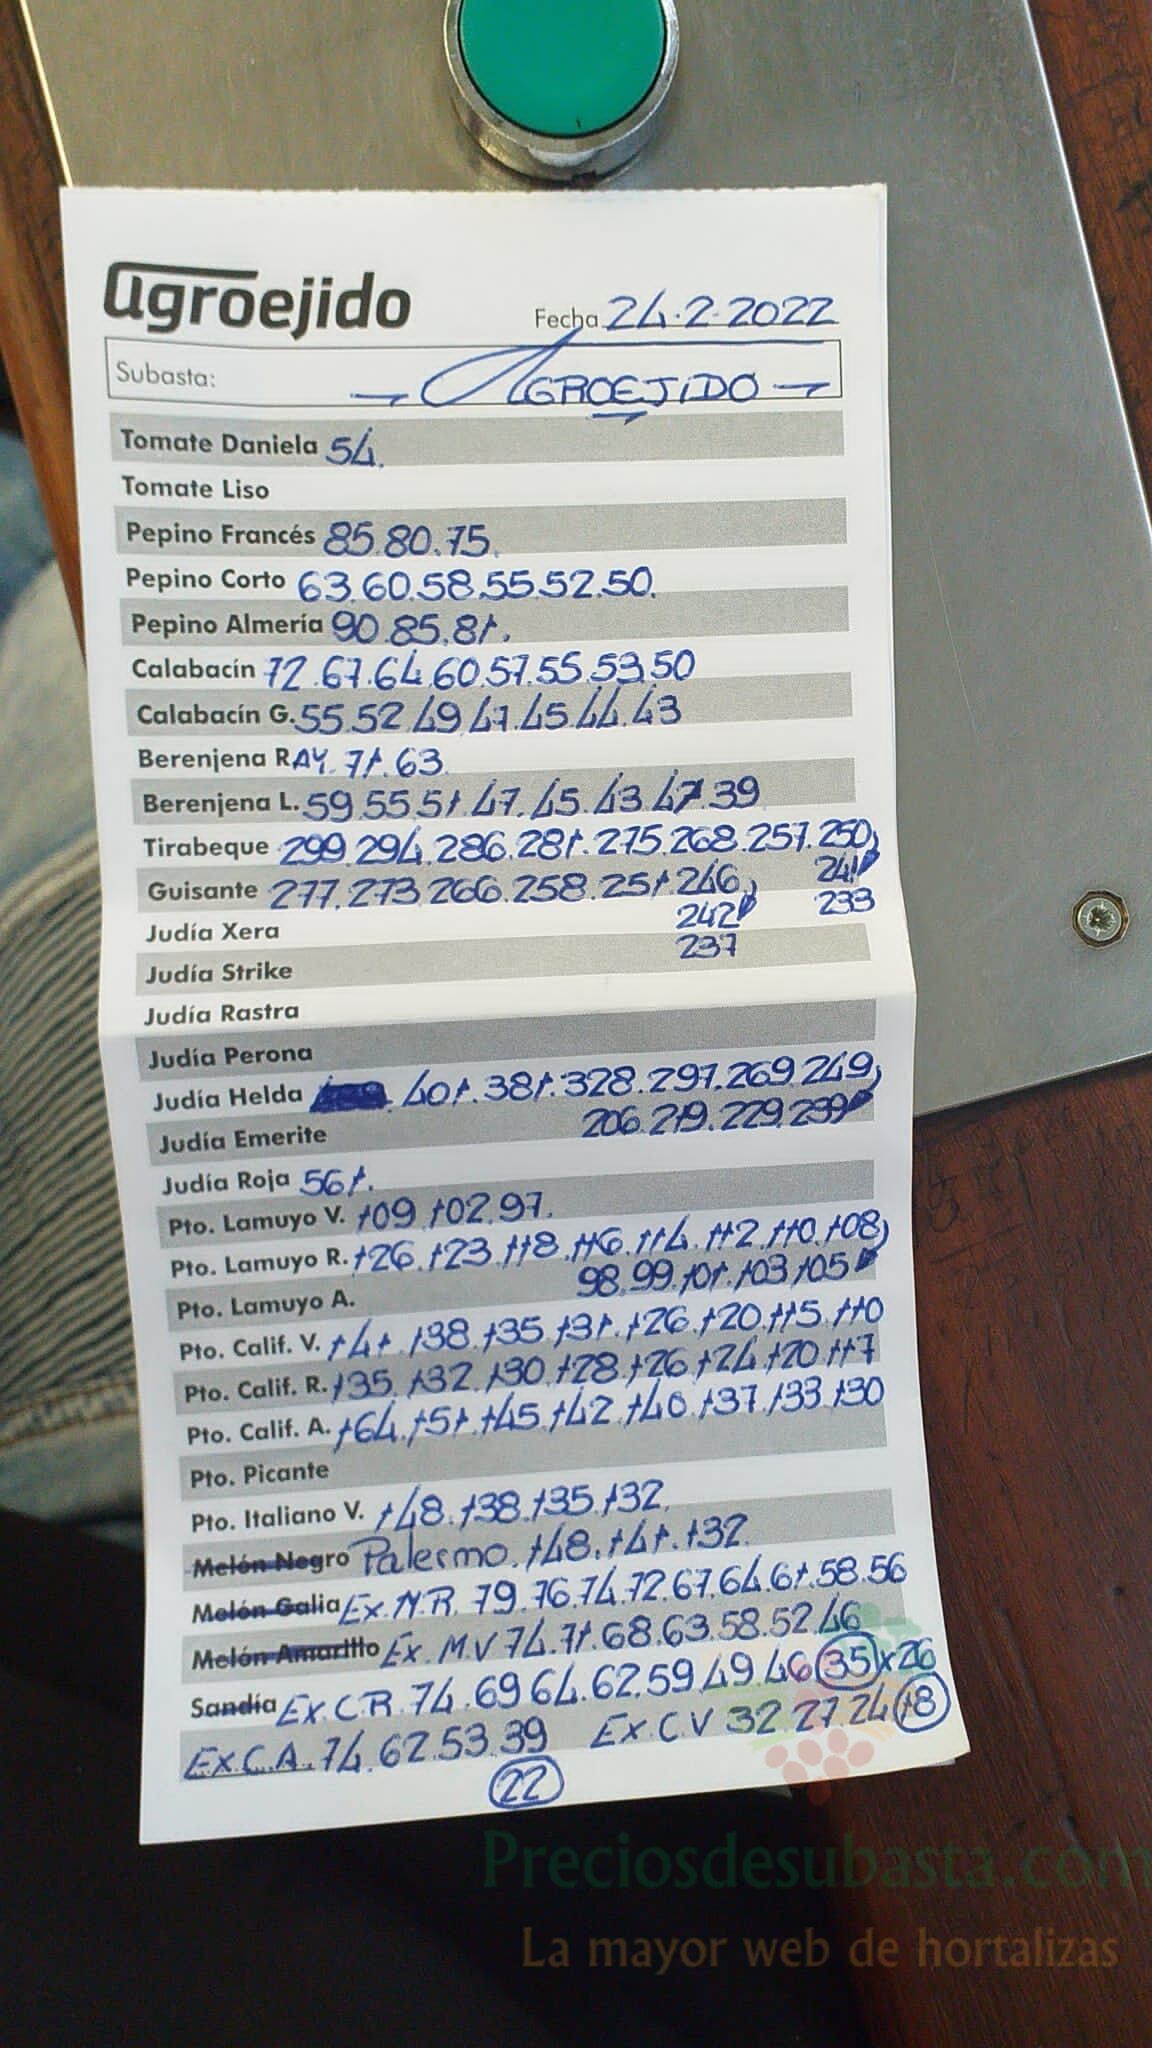 agroejido
Fecha 24.2.2022
Subasta: AGROEJIDO
Tomate Daniela 54.
Tomate Liso
Pepino Francés 85.80.75.
Pepino Corto 63.60.58.55.52.50.
Pepino Almería 90.85.81.
Calabacín 72.67.64.60.57.55.53.50
Calabacín G. 55.52.49.47.45.44.43
Berenjena RAY. 71.63
Berenjena L. 59.55.51.47.45.43.39
Tirabeque 299.294.286.281.275.268.257.250
241
Guisante 277.273.266.258.251.246
242 233
Judía Xera
237
Judía Strike
Judía Rastra
Judía Perona
Judía Helda 401.381.328.297.269.249
206.219.229.239
Judía Emerite
Judía Roja 561.
Pto. Lamuyo V. 109.102.97.
Pto. Lamuyo R. 126.123.118.116.114.112.110.108
98.99.101.103.105
Pto. Lamuyo A.
Pto. Calif. V. 141.138.135.131.126.120.115.110
Pto. Calif. R. 135.132.130.128.126.124.120.117
Pto. Calif. A. 164.151.145.142.140.137.133.130
Pto. Picante
Pto. Italiano V. 148.138.135.132.
Melón Negro Palermo. 148.141.132.
Melón Galia Ex.M.R. 79.76.74.72.67.64.61.58.56
Melón Amarillo Ex.M.V 74.71.68.63.58.52.46
Sandía Ex.C.R. 74.69.64.62.59.49.46 35 x 26
Ex.C.A. 74.62.53.39 Ex.C.V 32.27.24 18
22
Preciosdesubasta.com
La mayor web de hortalizas